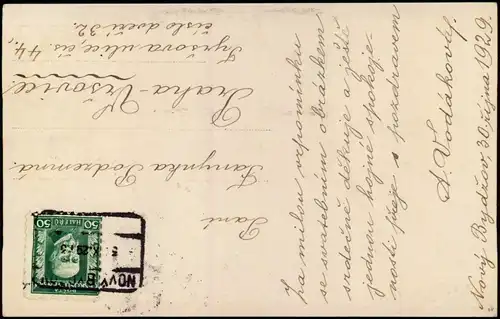 Paní
Fanynka Podzemná
Praha-Vršovice
Tyršova ulice, čís. 44.,
číslo dveří 32.
50 HALÉŘŮ 50
NOVÝ BYDŽOV
Za milou vzpomínku
se svatebním obrázkem
srdečně děkuje a ještě
jednou hojně spokoje-
nosti přeje s pozdravem
A. Vodákový.
Nový Bydžov, 30. října 1929